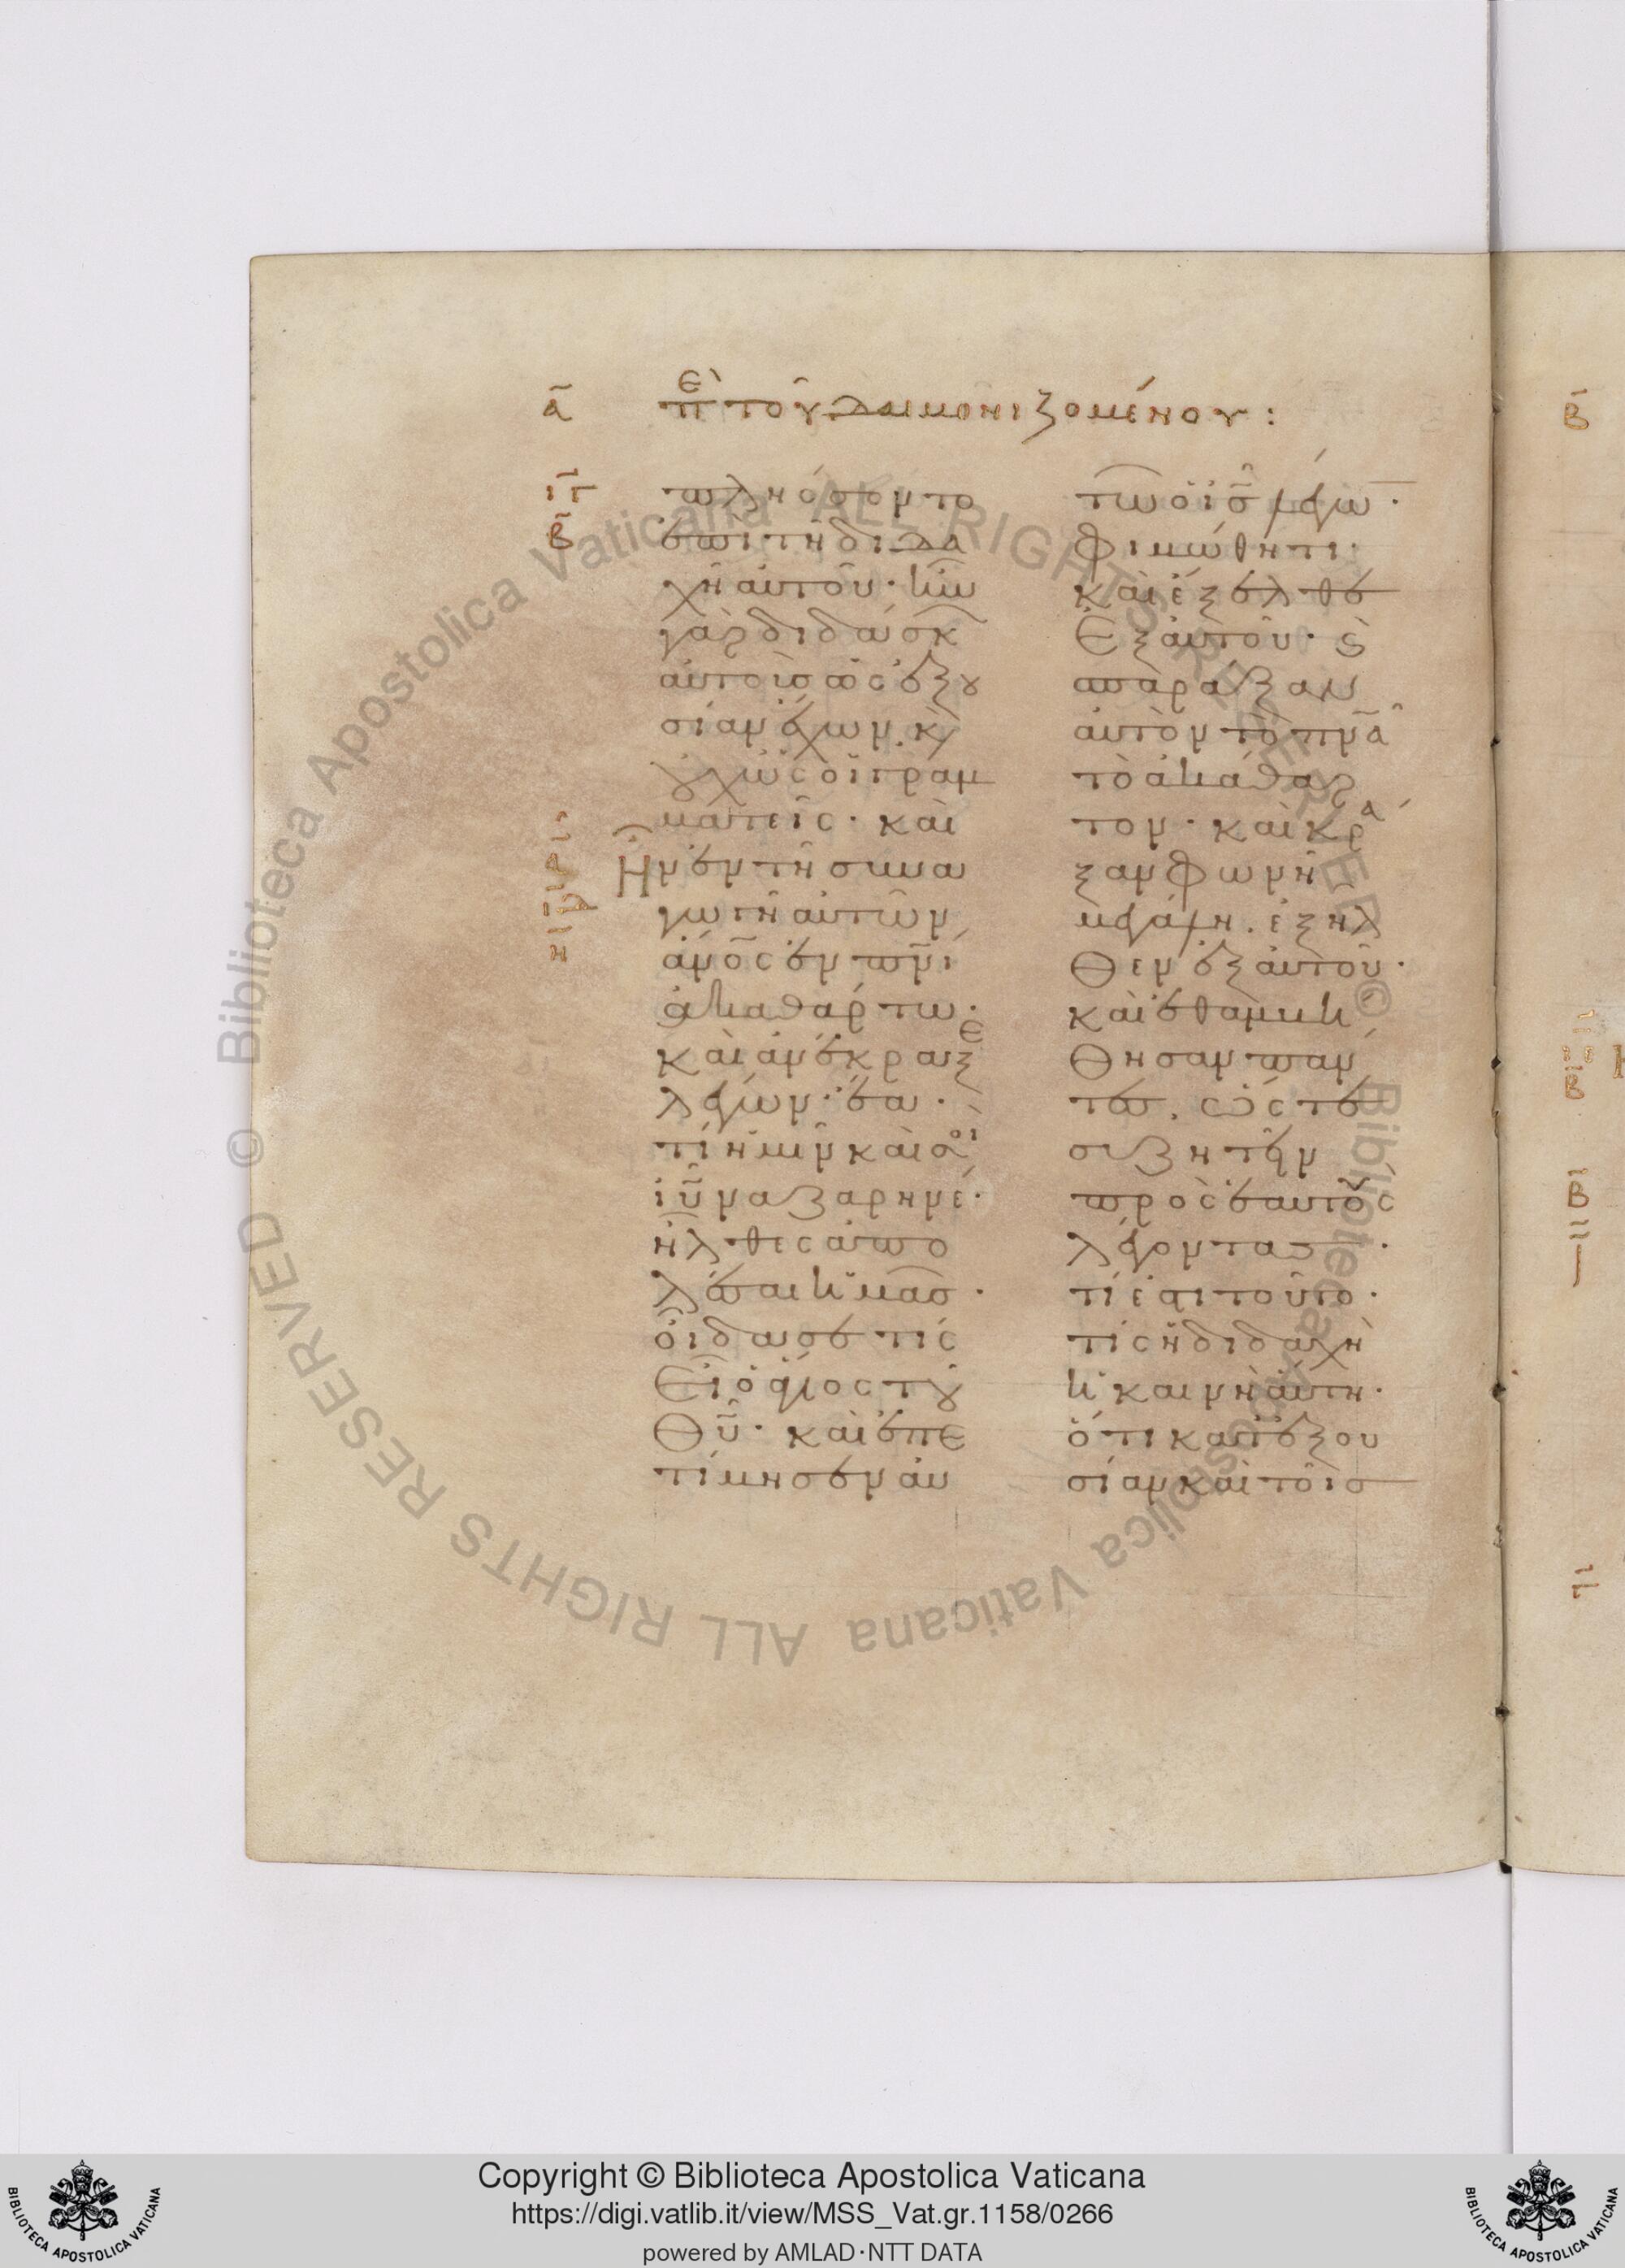 α̅ πὲ τοῦ δαιμονιζομένου:
ιγ̅
β̅
πλήσσοντο
ἐπὶ τῆ διδα
χῆ αὐτοῦ· ἦν
γὰρ διδάσκ
αὐτοὺσ ὡς ἐξου
σίαν ἔχων. κ̀
οὐχ ὡς οἱ γραμ
ματεῖς· καὶ
Ἦν ἐν τῆ συνα
γωγῆ αὐτῶν
ἄν̅ο̅ς ἐν πν̅ι
ἀκαθάρτω·
καὶ ἀνέκραξε
λέγων· ἔα·
τί ἡμῖν καὶ σοὶ
ἰῦ̅ ναζαρηνέ·
ἦλθες ἀπο
λέσαι ἡμᾶσ·
οἶδα σε τίς
εἶ ὁ ἅγιος τοῦ
θῦ̅· καὶ ἐπε
τίμησεν αὐ
τῶ ὁ ἰσ̅ λέγω̅·
φιμώθητι·
καὶ ἔξελθε
ἐξ αὐτοῦ· ϛ̀
σπαράξαν
αὐτὸν τὸ πν̅α
τὸ ἀκάθαρ
τον· καὶ κρά
ξαν φωνῆ
μεγάλη. ἐξῆλ
θεν ἐξ αὐτοῦ·
καὶ ἐθαμβή
θησαν πάν
τεσ. ὥς τε
συζητεῖν
πρὸς ἑαυτοὺς
λέγοντασ·
τί ἐστι τοῦτο·
τίς ἡ διδαχὴ
ἡ καινὴ αὕτη·
ὅτι κατ' ἐξου
σίαν καὶ τοῖσ
β̅
β̅
β̅
Copyright © Biblioteca Apostolica Vaticana
https://digi.vatlib.it/view/MSS_Vat.gr.1158/0266
powered by AMLAD·NTT DATA
BIBLIOTECA APOSTOLICA VATICANA
BIBLIOTECA APOSTOLICA VATICANA
© Biblioteca Apostolica Vaticana ALL RIGHTS RESERVED
© Biblioteca Apostolica Vaticana ALL RIGHTS RESERVED